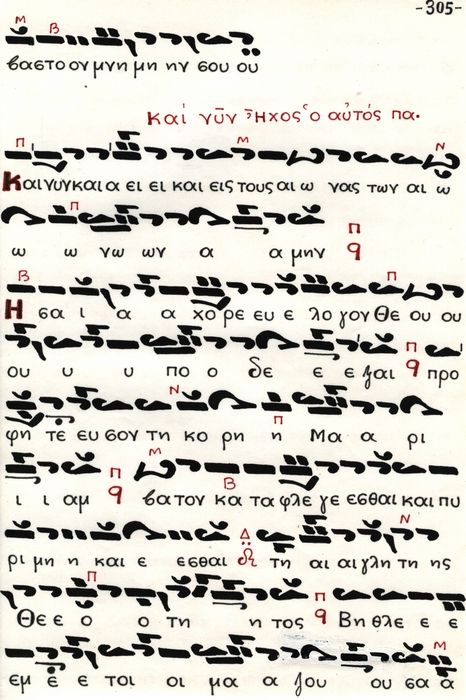 -305-
Μ Β
βαστο ου μνη μη ην σου ου
Καὶ νῦν Ἦχος ὁ αὐτός πα.
Π Μ Ν
Και νυν και α ει ει και εις τους αι ω νας των αι ω
Π
ω ω νω ων α α μην Π q
Β Π
Η σα ι α α χο ρε ευ ε λο γον Θε ου ου
ου υ υ πο ο δε ε ε ξαι Π q προ
Ν Π
φη τε ευ σον τη κο ρη η Μα α ρι
Π Μ Β
ι ι αμ q βα τον κα τα φλε γε εσθαι και πυ
Δ Ν
ρι μη η και ε εσθαι τη αι αι γλη τη ης
Π Π
Θε ε ο ο τη η τος q Βη θλε ε ε
Μ
εμ ε ε τοι οι μα α ζου ου σα α